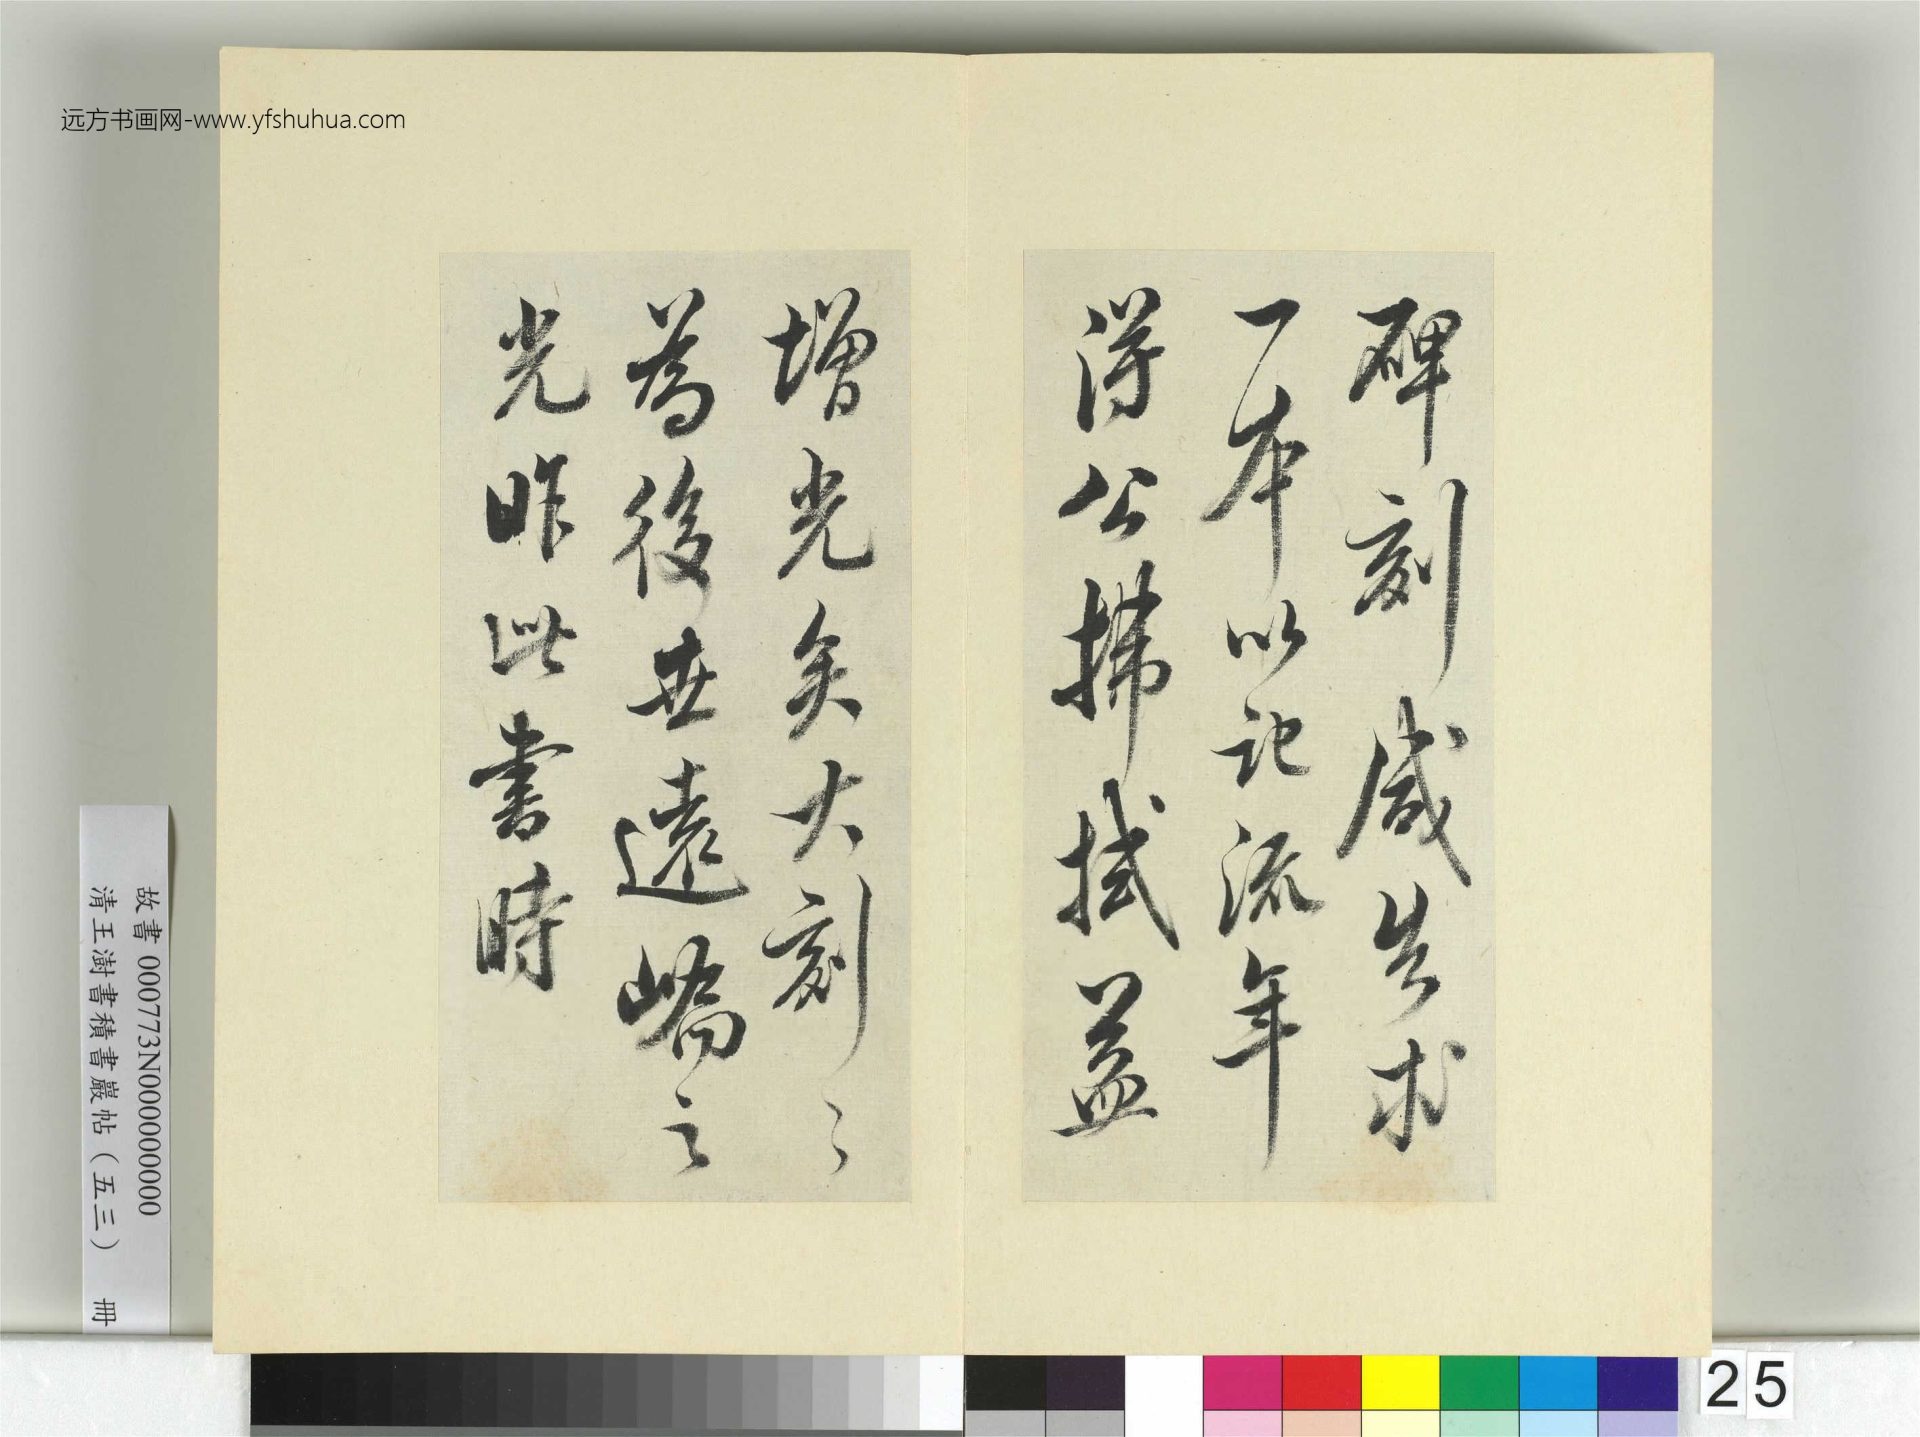 远方书画网-www.yfshuhua.com
碑刻成告求
一本以記流年
得公拂拭益
增光矣大刻之
為後世遠
之
光昨此書時
故書 000773N000000000
清王澍書積書巖帖（五三） 冊
25